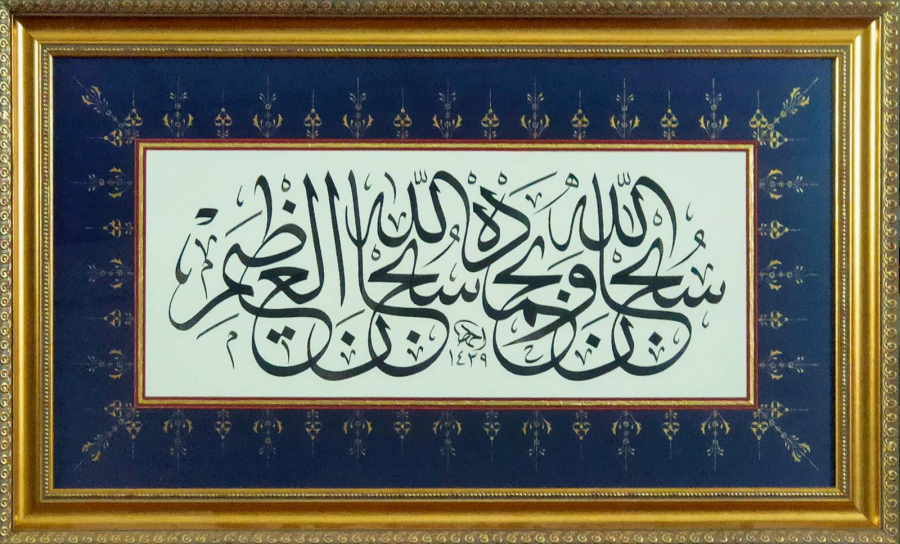 سبحان الله وبحمده سبحان الله العظيم
١٤٢٩